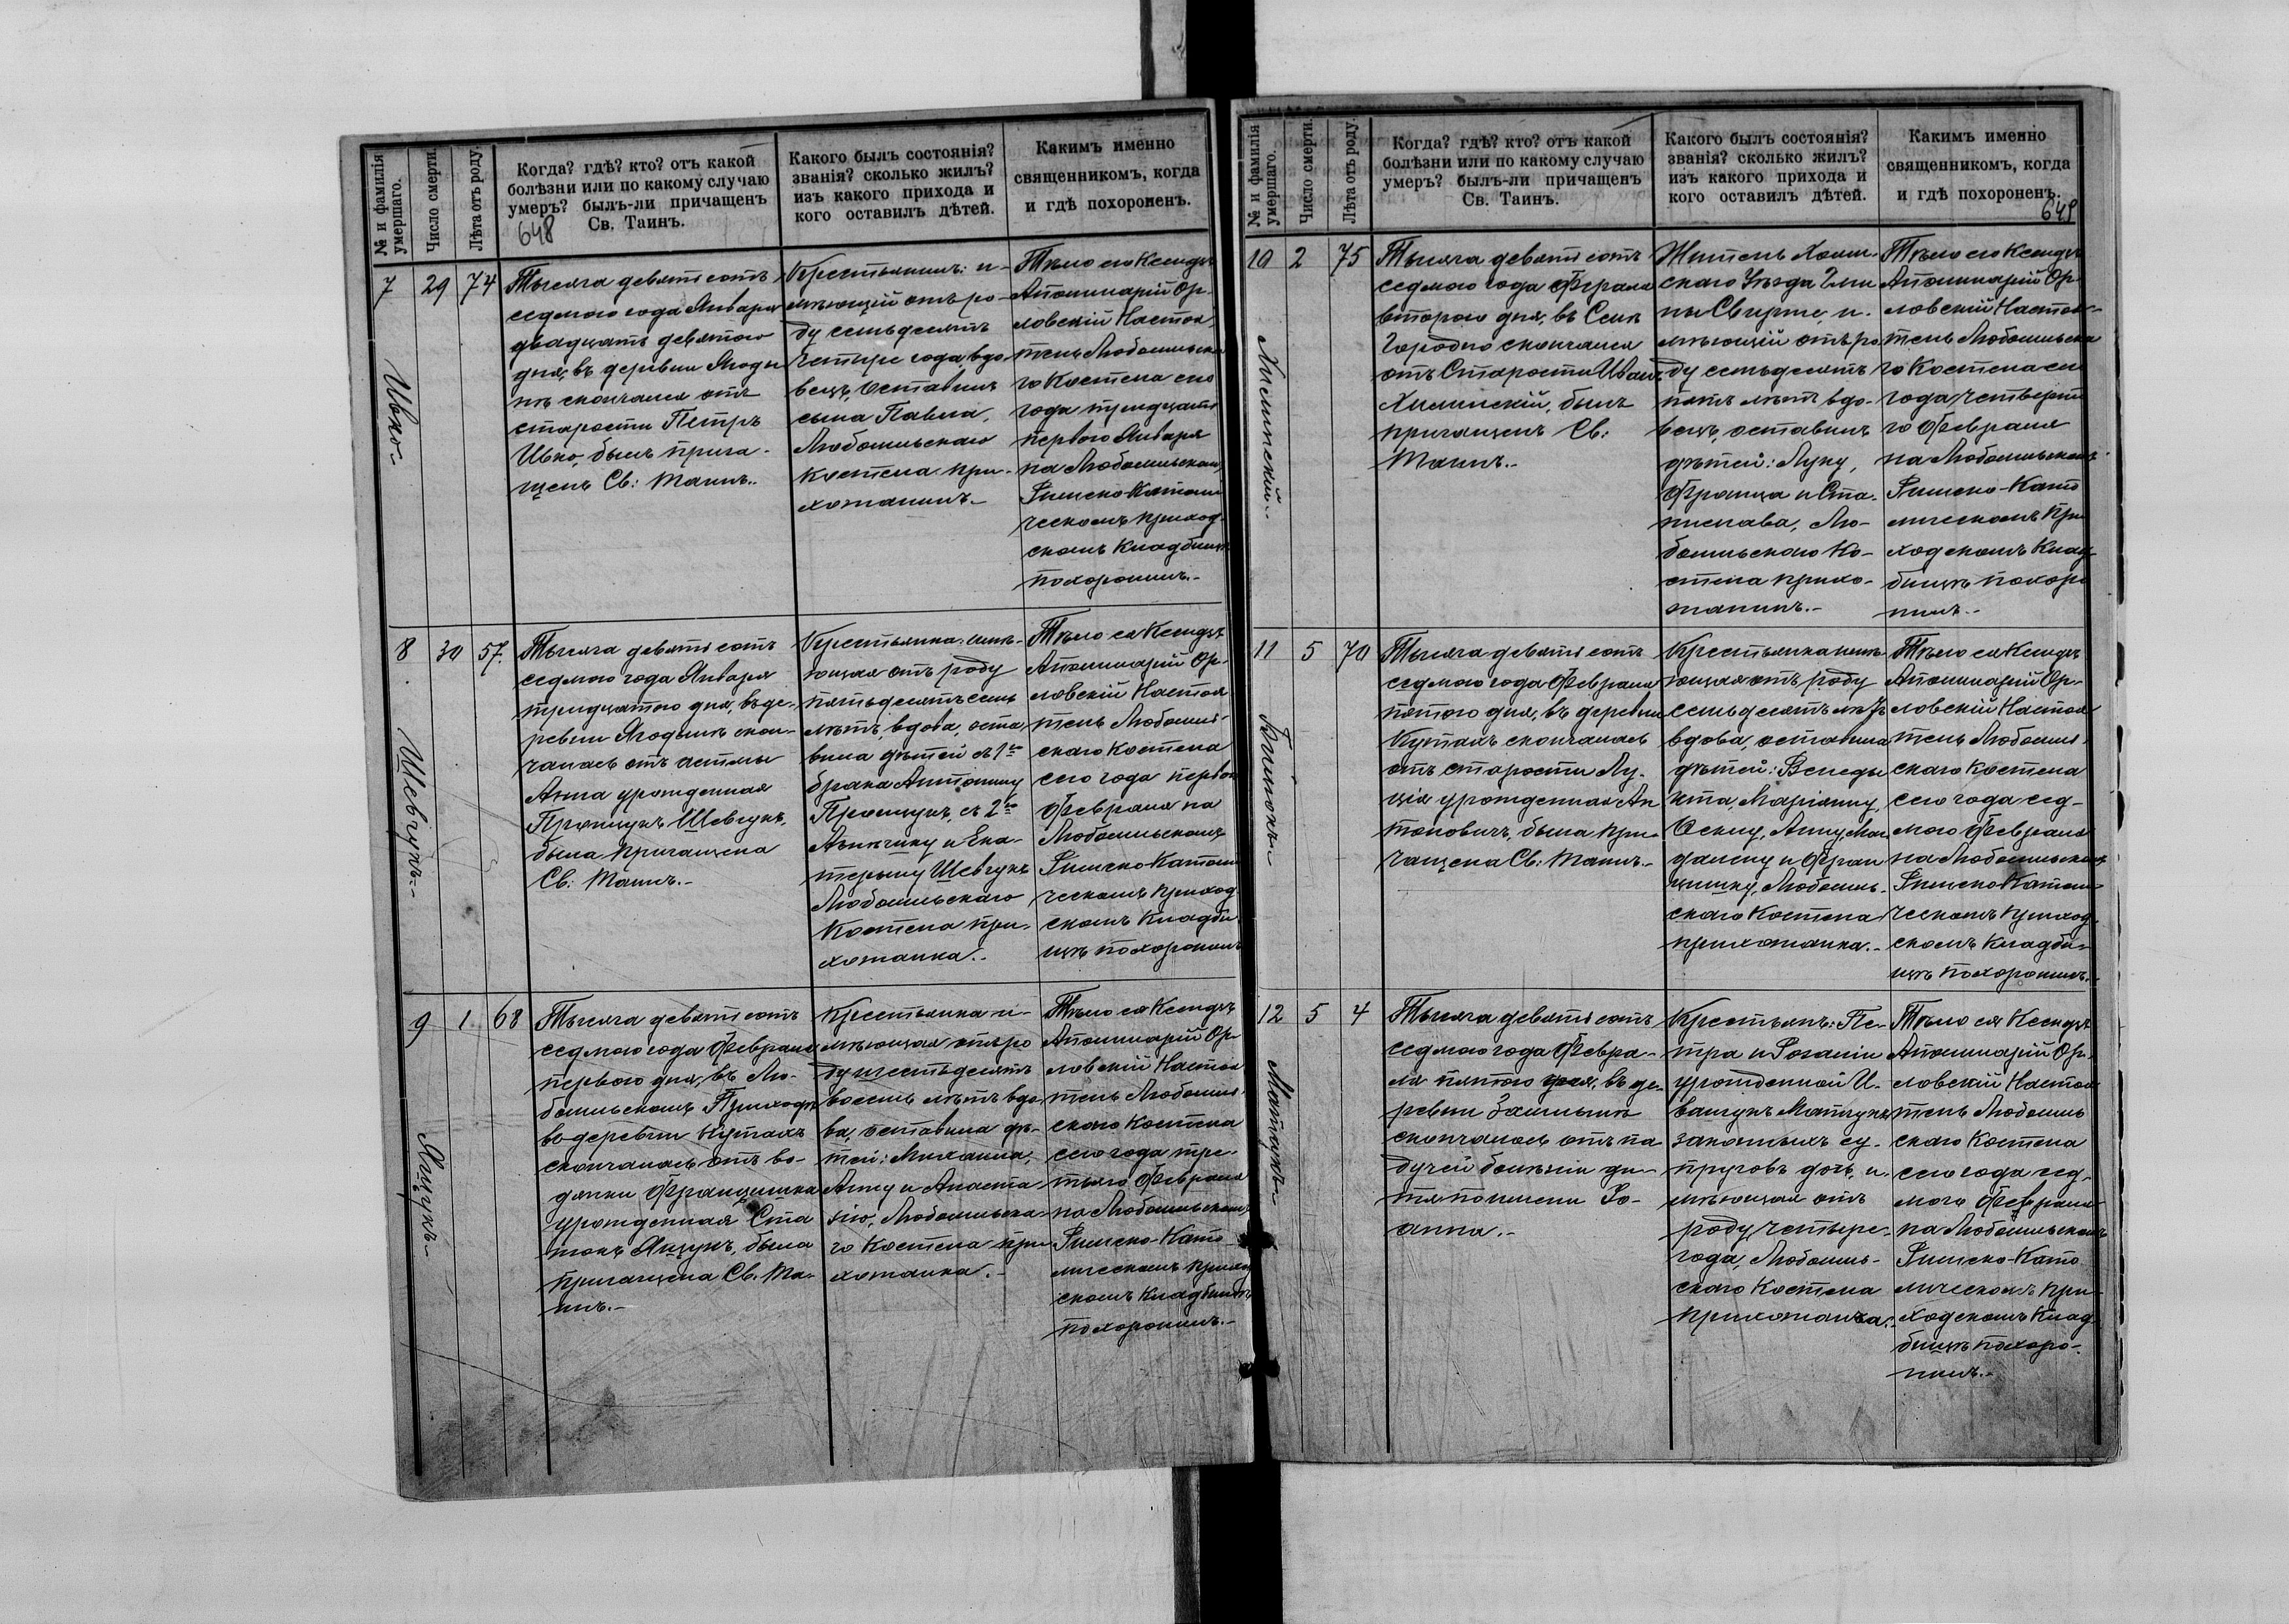 № и фамилія умершаго.
Число смерти.
Лѣта отъ роду.
Когда? гдѣ? кто? отъ какой
болѣзни или по какому случаю
умеръ? былъ-ли причащенъ
Св. Таинъ.
648
Какого былъ состоянія?
званія? сколько жилъ?
изъ какого прихода и
кого оставилъ дѣтей.
Какимъ именно
священникомъ, когда
и гдѣ похороненъ.
7
Ивко
29
74
Тысяча девятсотъ
седмого года Января
двадцать девятого
дня, въ деревни Ягоди
нѣ скончался отъ
старости Петръ
Ивко, былъ прича-
щенъ Св: Таинъ.
Крестьянинъ: и-
мѣющій отъ ро-
ду семьдесятъ
четыре года, вдо-
вецъ, оставилъ
сына Павла,
Любомльскаго
костела при-
хожанинъ.
Тѣло его Ксендзъ
Аполинарій Ор-
ловскій Настоя
тель Любомльска
го Костела сего
года тридцать
первого Января
на Любомльскомъ
Римско-Катол
ческомъ приход
скомъ кладбищѣ
похоронилъ.
8
Шевчукъ
30
57.
Тысяча девятсотъ
седмого года Января
тридцатого дня, въ де-
ревни Ягодинѣ скон-
чалась отъ астмы
Анна урожденная
Прощукъ Шевчукъ,
была причащена
Св: Таинъ.
Крестьянка: имѣ-
ющая отъ роду
пятьдесятъ семь
лѣтъ, вдова, оста
вила дѣтей съ 1го
брака Антонину
Прощукъ, съ 2го
и Ека-
терину Шевчукъ
Любомльскаго
Костела при-
хожанка.
Тѣло ея Ксендзъ
Аполинарій Ор-
ловскій Настоя
тель Любомль-
скаго Костела
сего года первого
Февраля на
Любомльскомъ
Римско Катол
ческомъ приход
скомъ кладби
щѣ похоронилъ
9
Яцукъ
1
68
Тысяча девятсотъ
седмого года Февраля
первого дня, въ Лю-
бомльскомъ Приходѣ
въ деревни Кутахъ
скончалась отъ во-
дянки Францишка
урожденная Ста
Яцукъ, была
причащена Св. Та-
инъ.
Крестьянка и-
мѣющая отъ ро
ду шестьдесятъ
восемь лѣтъ вдо-
ва, оставила дѣ-
тей: Михаила,
Анну и Анаста
зію, Любомльска-
го Костела при
хожанка.
Тѣло ея Ксендзъ
Аполинарій Ор-
ловскій Настоя
тель Любомль-
скаго Костела
сего года тре-
тьяго Февраля
на Любомльскомъ
Римско-Като
лическомъ приход
скомъ кладбищѣ
похоронилъ.
№ и фамилія умершаго.
Число смерти.
Лѣта отъ роду.
Когда? гдѣ? кто? отъ какой
болѣзни или по какому случаю
умеръ? былъ-ли причащенъ
Св. Таинъ.
Какого былъ состоянія?
званія? сколько жилъ?
изъ какого прихода и
кого оставилъ дѣтей.
Какимъ именно
священникомъ, когда
и гдѣ похороненъ.
649
10
2
75
Тысяча девятсотъ
седмого года Феврала
второго дня, въ Селѣ
Городно скончался
отъ Старости Иванъ
былъ
причащенъ Св:
Таинъ.
Житель Холм-
скаго Уѣзда Гми
ны и-
мѣющій отъ ро
ду семьдесятъ
пять лѣтъ вдо-
вецъ, оставилъ
дѣтей: Луку,
Франца и Ста-
нислава, Лю-
бомльскаго Ко-
стела прихо-
жанинъ.
Тѣло его Ксендзъ
Аполинарій Ор-
ловскій Настоя-
тель Любомльска
го Костела сего
года четверта
го Февраля
на Любомльскомъ
Римско-Като
лическомъ При
ходскомъ Клад
бищѣ похоро
нилъ.
11
5
70
Тысяча девятсотъ
седмого года Февраля
пятого дня, въ деревни
Кутахъ скончалась
отъ старости Лу-
ція урожденная Ан
тоновичъ, была при-
чащена Св: Таинъ.
Крестьянка имѣ-
ющая отъ роду
семьдесятъ лѣтъ
вдова, оставила
дѣтей: Венеди
кта, Маріянну,
Анну, Маг
далену и Фран
цишку, Любомль-
скаго Костела
прихожанка.
Тѣло ея Ксендзъ
Аполинарій Ор-
ловскій Настоя
тель Любомль-
скаго Костела
сего года сед-
мого Февраля
на Любомльскомъ
Римско Катол-
ческомъ приход
скомъ кладби-
щѣ похоронилъ.
12
Матчукъ
5
4
Тысяча девятсотъ
седмого года Февра-
ля пятого дня, въ де-
ревни
скончалась отъ па
дучей болѣзни ди-
тя по имени Іо-
анна.
Крестьянъ: Пе-
тра и Розаліи
урожденной И-
ващукъ Матчукъ
законныхъ су-
пруговъ дочь, и-
мѣющая отъ
роду четыре
года, Любомль-
скаго Костела
прихожанка.
Тѣло ея Ксендзъ
Аполинарій Ор-
ловскій Настоя
тель Любомль
скаго Костела
сего года сед-
мого Февраля
на Любомльскомъ
Римско-Като
лическомъ При
ходскомъ Клад
бищѣ похоро-
нилъ.